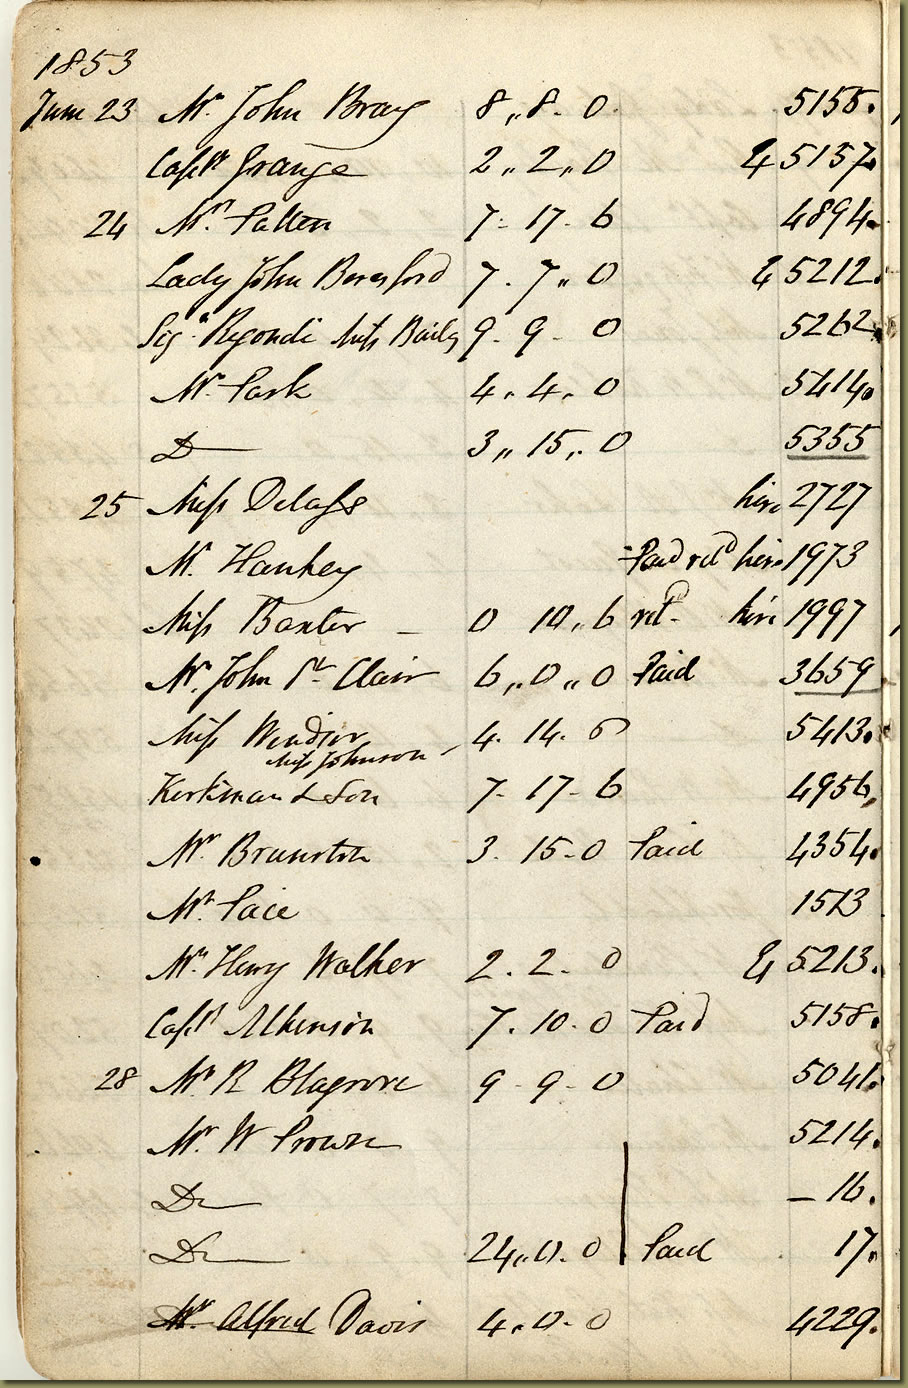 1853
June 23 Mr. John Bray 8 „ 8 - 0 5155.
Captn Grange 2 „ 2 „ 0 & 5137.
24 Mrs. Patten 7 - 17 . 6 4894.
Lady John Beresford 7 . 7 „ 0 & 5212.
Sigr Regondi Miss Baily 9 - 9 - 0 5262.
Mr. Park 4 . 4 . 0 5414.
Do 3 „ 15 „ 0 5355
25 Miss hire 2727
Mr. Hankey Paid retd hire 1973
Miss Baxter – 0 10 „ 6 ret. hire 1997
Mr. John St. Clair 6 „ 0 „ 0 Paid 3659
Miss Windsor
Miss Johnson – 4 . 14 . 6 5413.
Kirkman & Son 7 - 17 - 6 4956.
Mr. 3 . 15 - 0 Paid 4354.
Mr. 1513
Mr. Henry Walker 2 . 2 . 0 & 5213.
Captn Atkinson 7 . 10 . 0 Paid 5158.
28 Mr R Blagrove 9 - 9 - 0 5041.
Mr. W Prowse 5214.
Do – 16.
Do 24 „ 0 . 0 Paid 17.
Mr. Alfred Davis 4 . 0 - 0 4229.